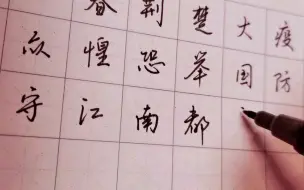 荆楚大疫
众惶恐举国防
守江南都